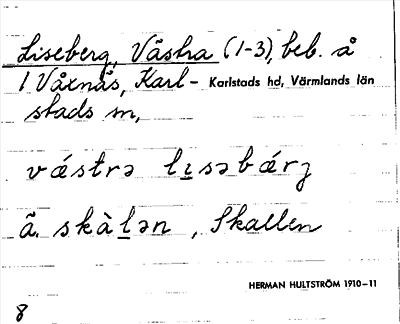 Liseberg, Västra (1-3), beb. å
1 Våxnäs, Karl- Karlstads hd, Värmlands län
stads sn,
vǽstrə li̱səbǽrj
ã. skàḻən , Skallen
HERMAN HULTSTRÖM 1910–11
8